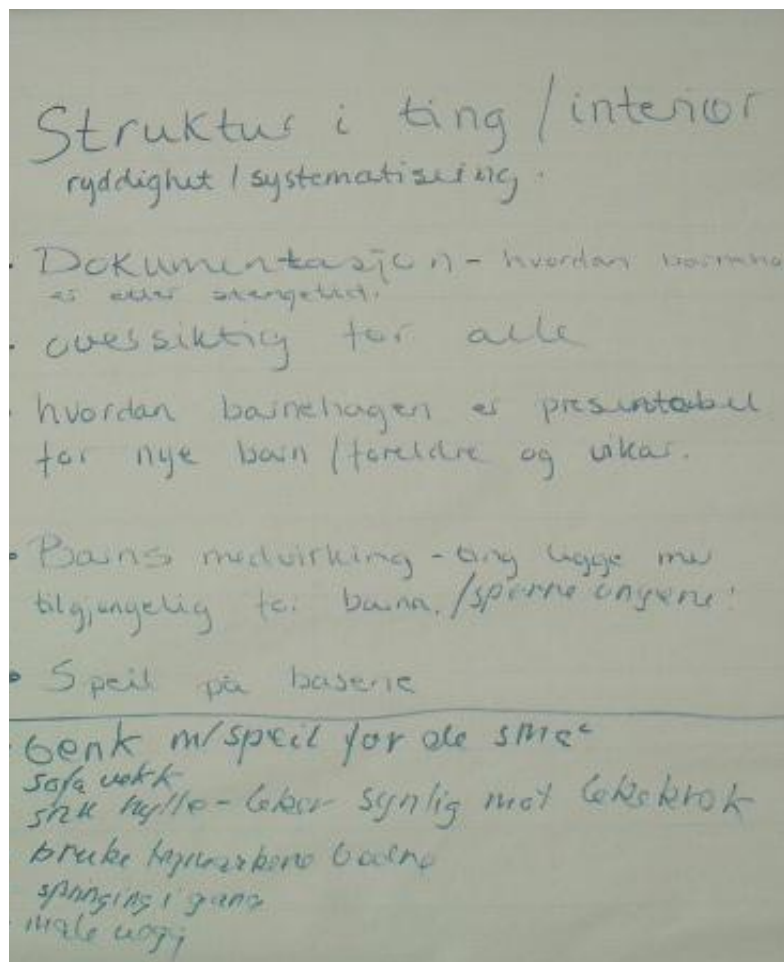 Struktur i ting / interiør
ryddighet / systematisering.
• Dokumentasjon - hvordan
er etter stengetid.
• oversiktig for alle
• hvordan barnehagen er presentabel
for nye barn / foreldre og vikar.
• Barns medvirking - ting ligge mer
tilgjengelig for barna. / spørre ungene!
• Speil på basene
• benk m/speil for de små
sofa vekk
snu hylle - leker synlig mot lekekrok
bruke
springing i gang
• male